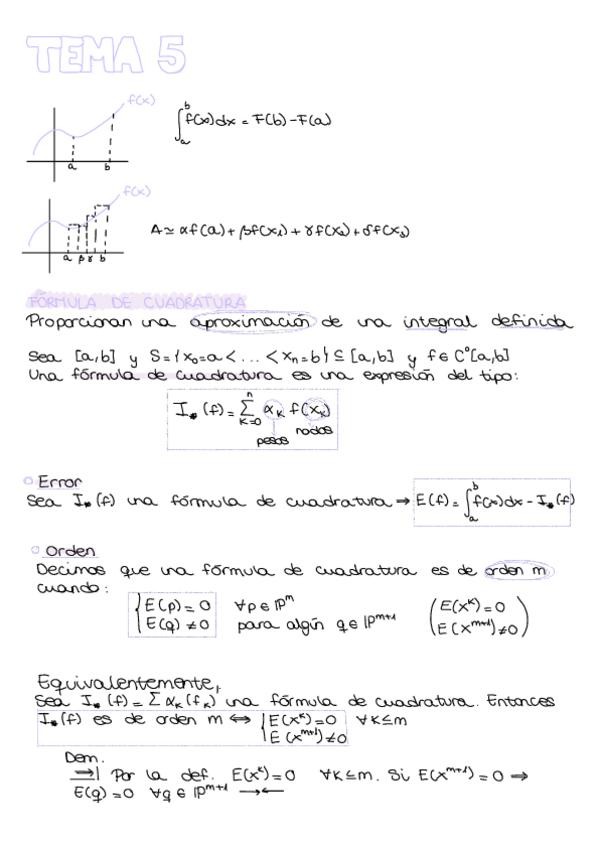 TEMA 5
f(x)
a b
∫_a^b f(x)dx = F(b) - F(a)
f(x)
a β γ b
A ≃ αf(a) + βf(x₁) + γf(x₂) + δf(x₃)
FÓRMULA DE CUADRATURA
Proporcionan una aproximación de una integral definida
Sea [a,b] y S = {x₀=a < ... < xₙ=b} ⊆ [a,b] y f ∈ C⁰[a,b]
Una fórmula de cuadratura es una expresión del tipo:
I_*(f) = Σ_{k=0}^{n} α_k f(x_k)
nodos
pesos
Error
Sea I_*(f) una fórmula de cuadratura → E(f) = ∫_a^b f(x)dx - I_*(f)
Orden
Decimos que una fórmula de cuadratura es de orden m,
cuando:
{ E(p) = 0 ∀p ∈ ℙ^m ( E(x^k) = 0
E(q) ≠ 0 para algún q ∈ ℙ^{m+1} E(x^{m+1}) ≠ 0 )
Equivalentemente,
Sea I_*(f) = Σ α_k (f_k) una fórmula de cuadratura. Entonces
I_*(f) es de orden m ⟺ { E(x^k) = 0 ∀k ≤ m
E(x^{m+1}) ≠ 0
Dem.
⟹| Por la def. E(x^k) = 0 ∀k ≤ m. Si E(x^{m+1}) = 0 ⇒
E(q) = 0 ∀q ∈ ℙ^{m+1} →←